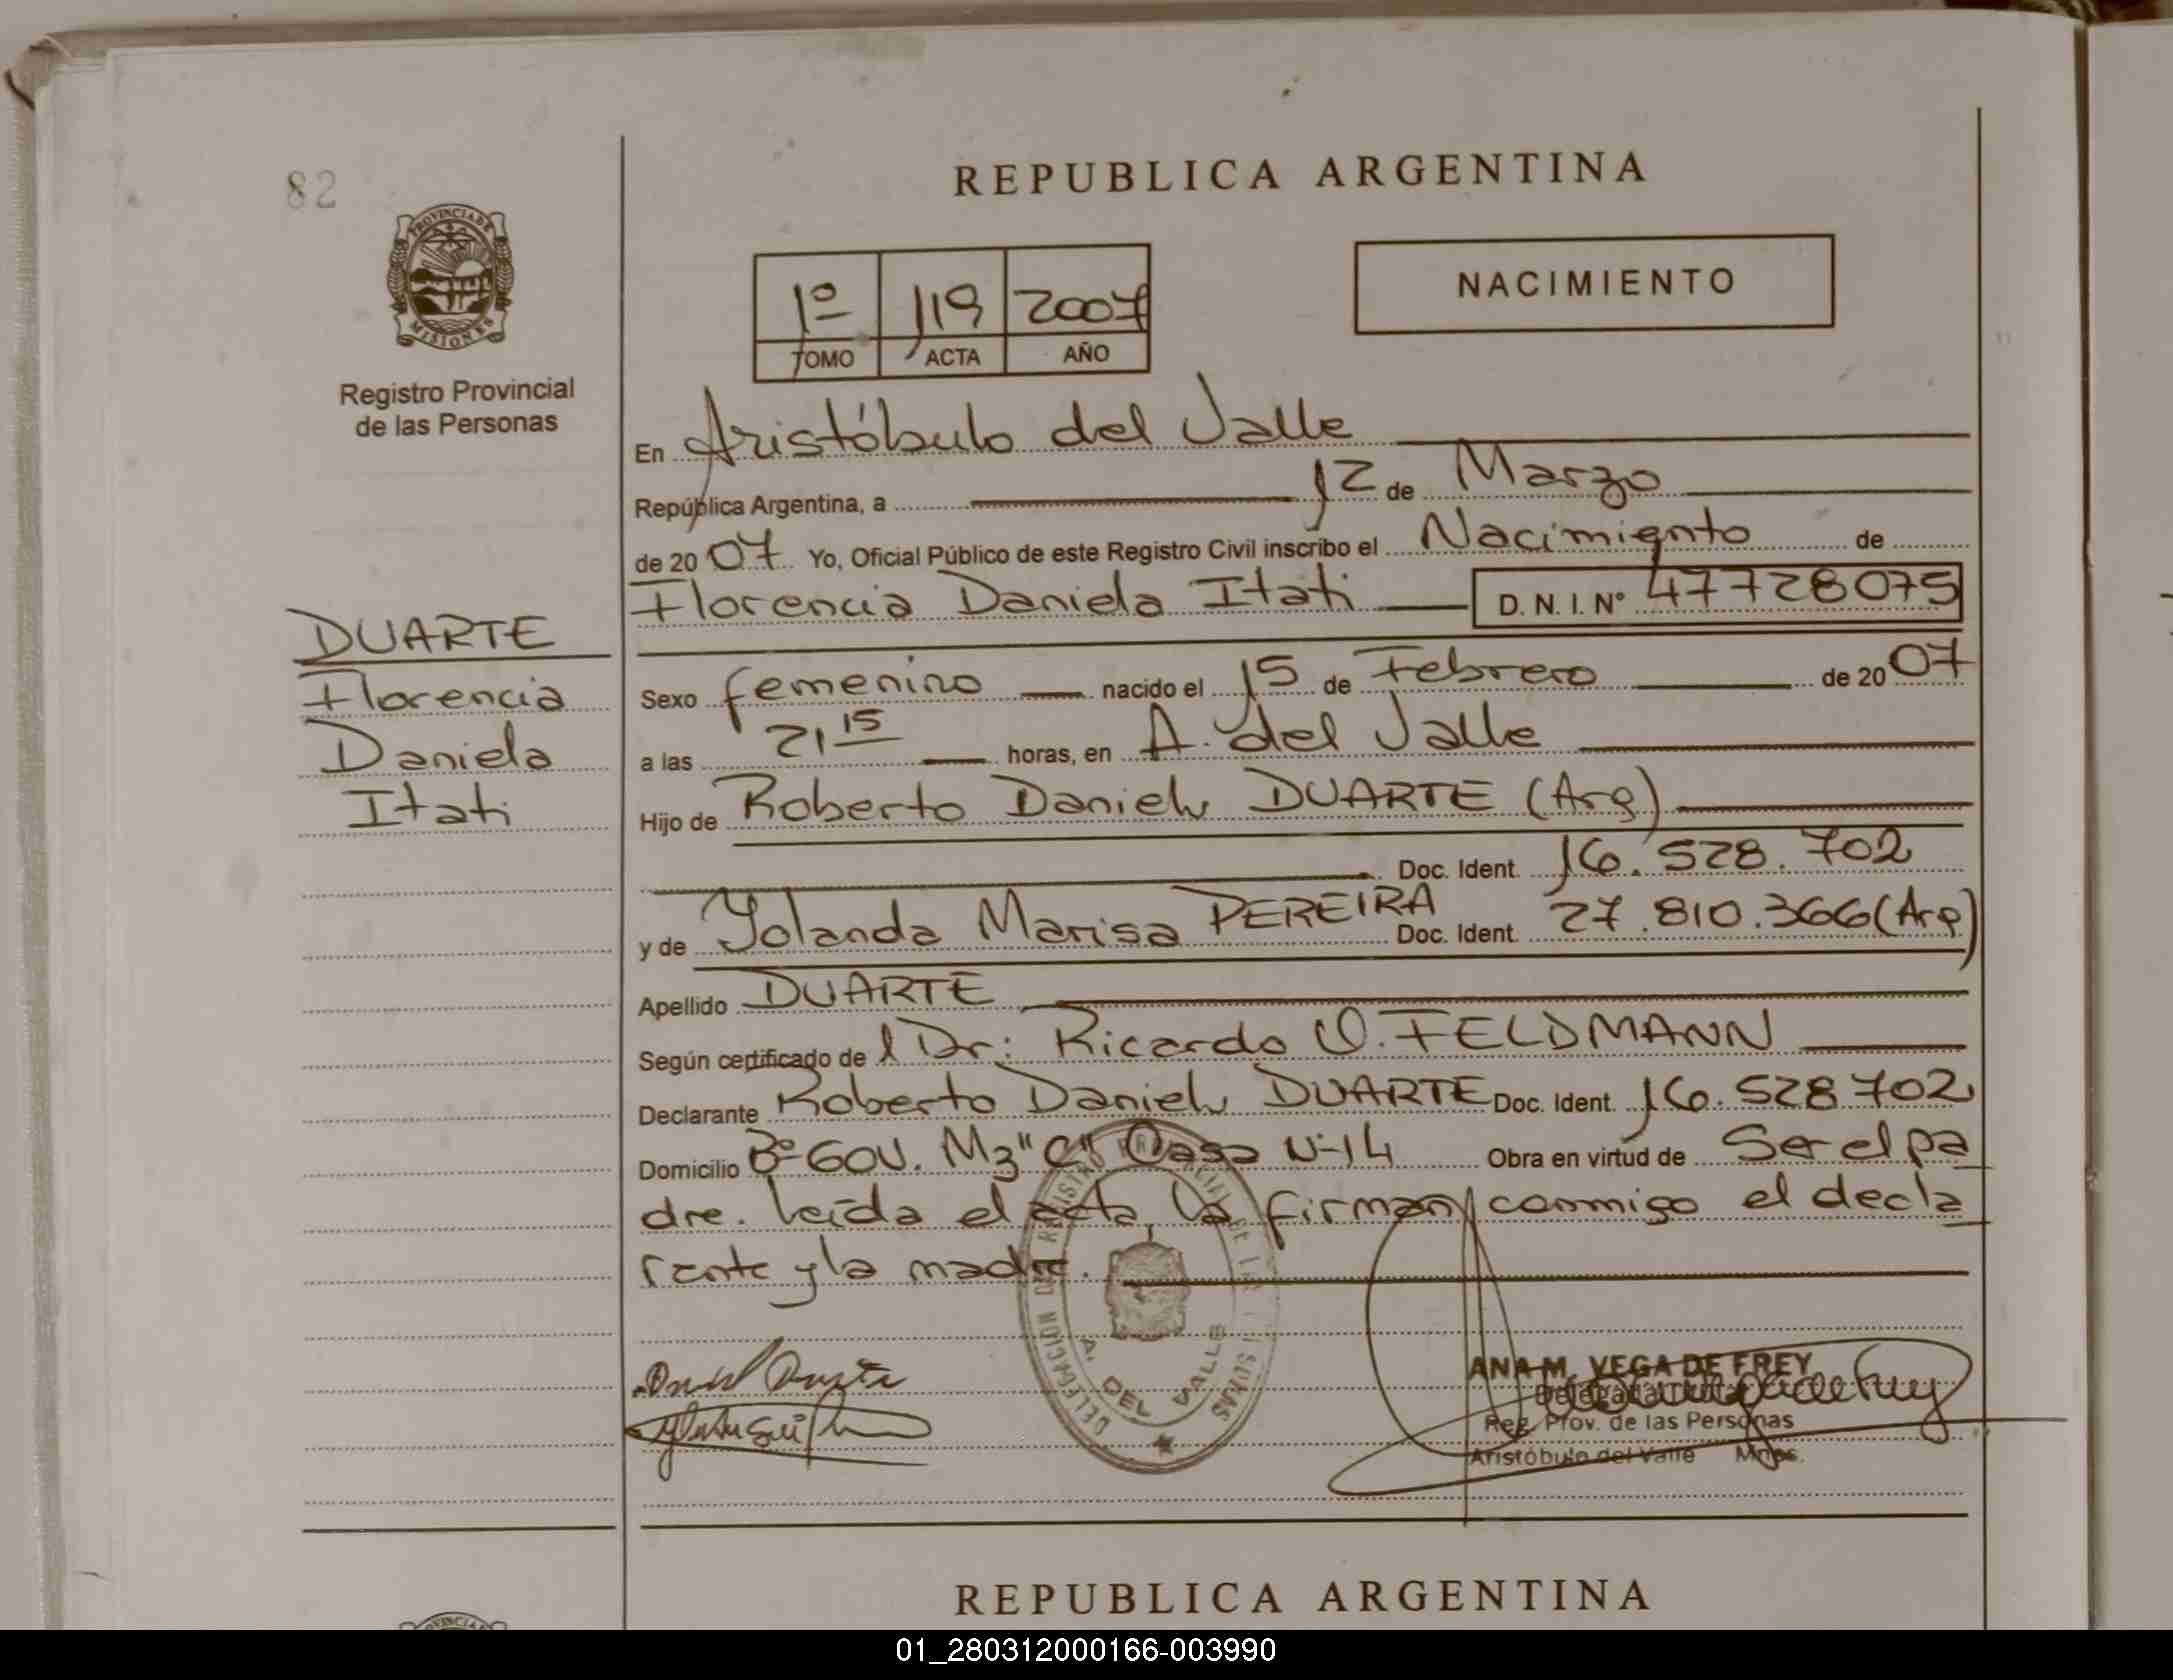 82
PROVINCIA DE
MISIONES
Registro Provincial
de las Personas
REPUBLICA ARGENTINA
1º 119 2007
TOMO ACTA AÑO
NACIMIENTO
En Aristóbulo del Valle
República Argentina, a 12 de Marzo
de 20 07 Yo, Oficial Público de este Registro Civil inscribo el Nacimiento de
Florencia Daniela Itati D. N. I. Nº 47728075
DUARTE
Florencia
Daniela
Itati
Sexo femenino nacido el 15 de Febrero de 20 07
a las 21 15 horas, en A. del Valle
Hijo de Roberto Daniel DUARTE (Arg)
Doc. Ident. 16.528.702
y de Yolanda Marisa PEREIRA Doc. Ident. 27.810.366 (Arg)
Apellido DUARTE
Según certificado de l Dr: Ricardo O. FELDMANN
Declarante Roberto Daniel DUARTE Doc. Ident. 16.528702
Domicilio Bº GOV. Mz "C" Casa Nº14 Obra en virtud de Ser el pa
dre. Leída el acta, la firman conmigo el decla
rante y la madre.
DELEGACION DEL REGISTRO PROVINCIAL DE LAS PERSONAS
A. DEL VALLE
ANA M. VEGA DE FREY
Delegada Titular
Reg. Prov. de las Personas
Aristóbulo del Valle Mnes.
REPUBLICA ARGENTINA
PROVINCIA
01_280312000166-003990